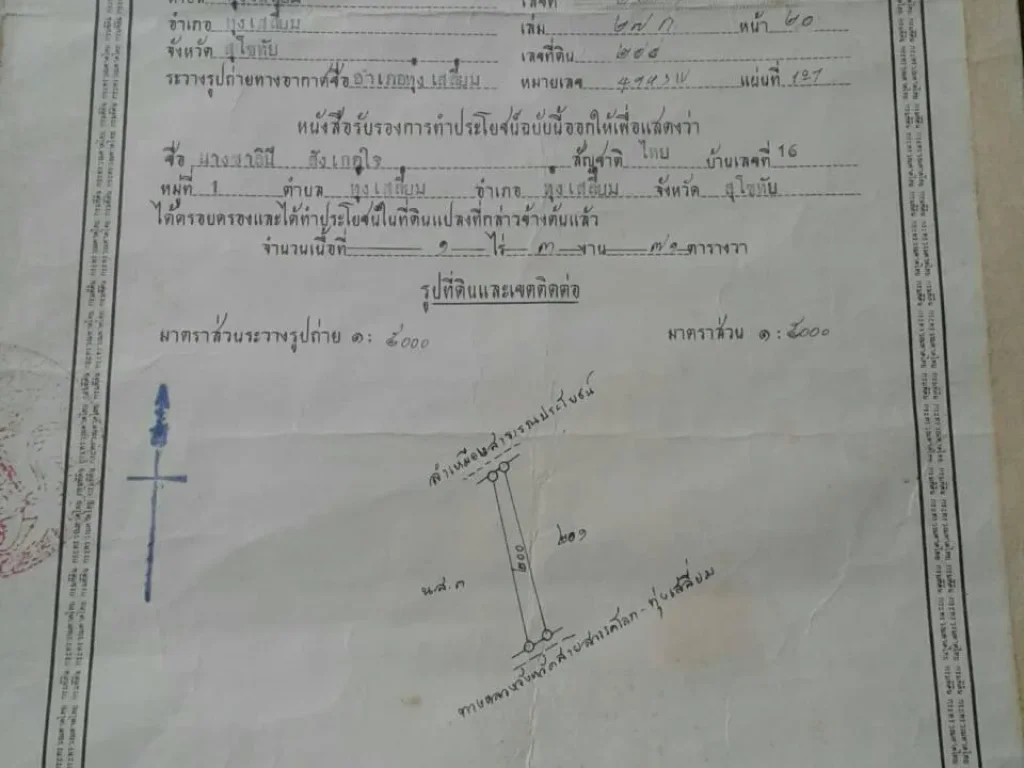 อำเภอ ทุ่งเสลี่ยม เล่ม ๒๗ ก หน้า ๒๐
จังหวัด สุโขทัย เลขที่ดิน
ระวางรูปถ่ายทางอากาศชื่อ อำเภอทุ่งเสลี่ยม หมายเลข แผ่นที่ ๑๒๑
หนังสือรับรองการทำประโยชน์ฉบับนี้ออกให้เพื่อแสดงว่า
ชื่อ สัญชาติ ไทย บ้านเลขที่ 16
หมู่ที่ 1 ตำบล ทุ่งเสลี่ยม อำเภอ ทุ่งเสลี่ยม จังหวัด สุโขทัย
ได้ครอบครองและได้ทำประโยชน์ในที่ดินแปลงที่กล่าวข้างต้นแล้ว
จำนวนเนื้อที่ ๑ ไร่ ๓ งาน ๗๑ ตารางวา
รูปที่ดินและเขตติดต่อ
มาตราส่วนระวางรูปถ่าย ๑: ๕๐๐๐ มาตราส่วน ๑: ๕๐๐๐
ลำเหมืองสาธารณประโยชน์
๒๐๐
๒๐๑
น.ส.๓
ทางหลวงจังหวัดสายสวรรคโลก - ทุ่งเสลี่ยม